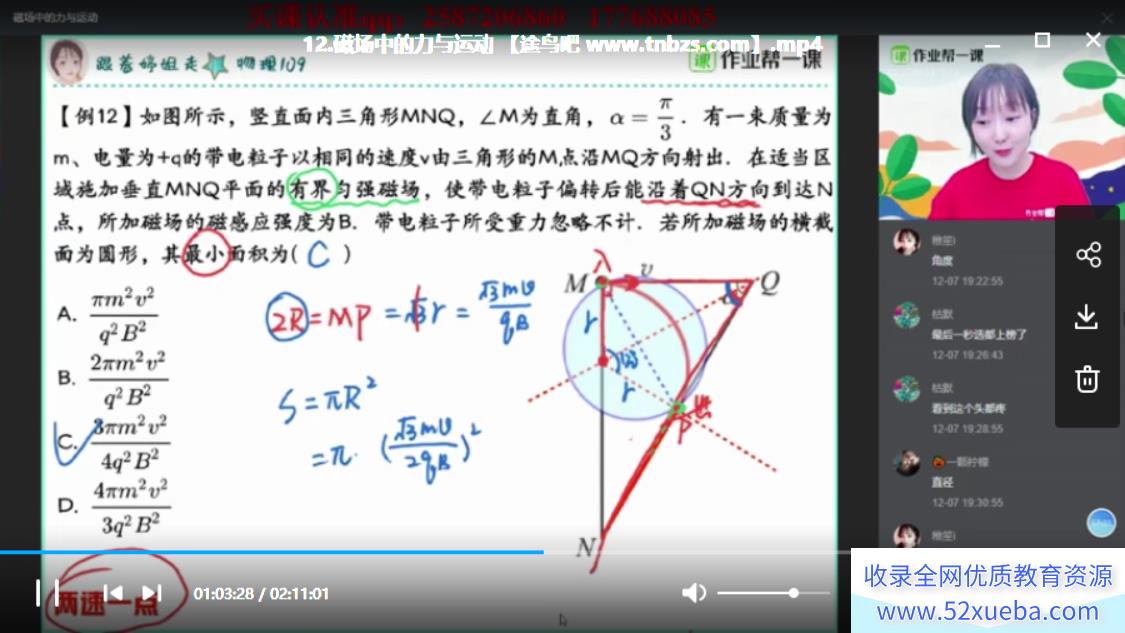 磁场中的力与运动
买课认准qq：2587206860 177688085
12.磁场中的力与运动 【途鸟吧 www.tnbzs.com】.mp4
跟着婷姐走 物理109
课 作业帮一课
课 作业帮一课
【例12】如图所示，竖直面内三角形MNQ，∠M为直角，α = π/3．有一束质量为
m、电量为+q的带电粒子以相同的速度v由三角形的M点沿MQ方向射出．在适当区
域施加垂直MNQ平面的有界匀强磁场，使带电粒子偏转后能沿着QN方向到达N
点，所加磁场的磁感应强度为B．带电粒子所受重力忽略不计．若所加磁场的横截
面为圆形，其最小面积为( C )
A. πm²v²/q²B²
B. 2πm²v²/q²B²
C. 3πm²v²/4q²B²
D. 4πm²v²/3q²B²
2R = MP = √3r = √3mv/qB
S = πR²
= π·(√3mv/2qB)²
入
M
v
Q
r
r
P
N
两速一点
角度
12-07 19:22:55
枯默
最后一秒选都上榜了
12-07 19:26:43
枯默
看到这个头都疼
12-07 19:28:55
一颗柠檬
直径
12-07 19:30:55
01:03:28 / 02:11:01
收录全网优质教育资源
www.52xueba.com